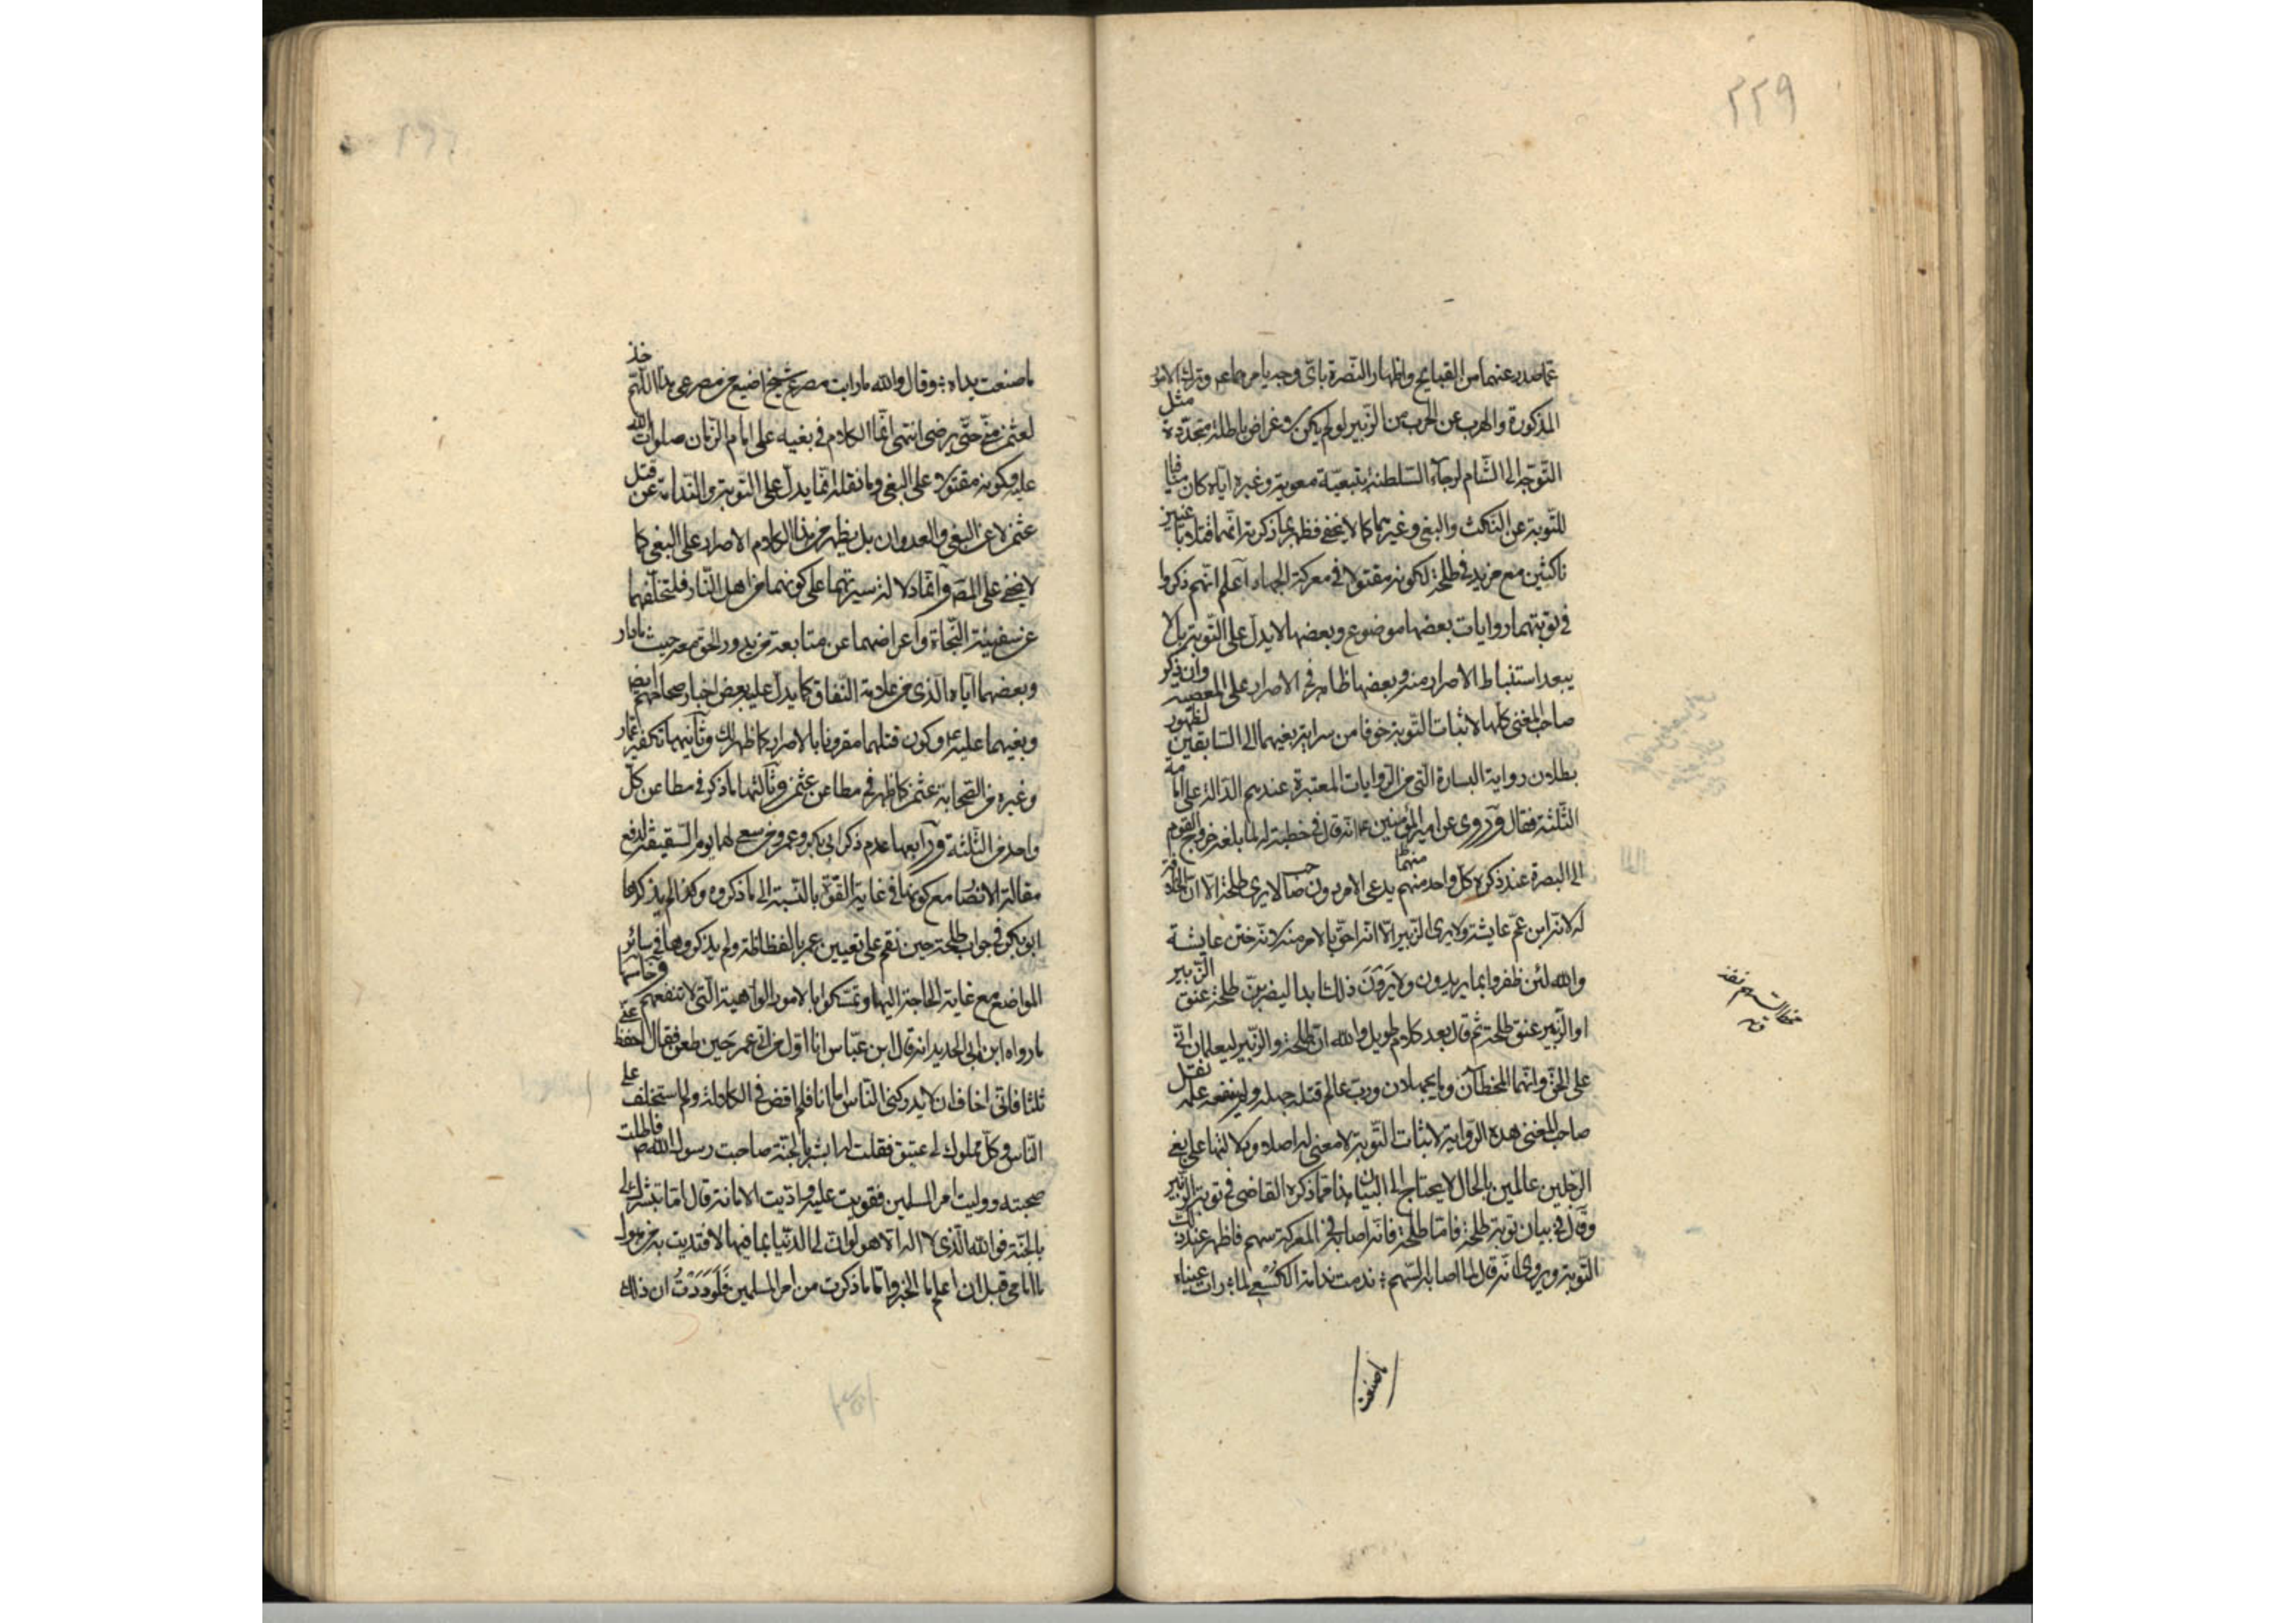 ٢٢٩
عما صدر عنهما من القبايح واظهار النصرة باى وجه يامر وترك الامور
المذكورة والهرب عن الحرب من الزبير لو لم يكن لاغراض باطلة متجددة مثل
التوجه الى الشام لرجاء السلطنة بتبعية معوية وغيره اياه كان منافيا
للتوبة عن النكث والبغى وغيرهما كما لا يخفى فظهر بما ذكرته انهما قتلا باغيين
ناكثين مع مزيد فى طلحة لكونه مقتولا فى معركة الجهاد اعلم انهم ذكروا
فى توبتهما روايات بعضها موضوع وبعضها لا يدل على التوبة بل لا
يبعد استنباط الاصرار منه وبعضها ظاهر فى الاصرار على المعصية وان ذكر
صاحب المغنى كلها لاثبات التوبة خوفا من سراية بغيهما الى السابقين لظهور
بطلان رواية البشارة التى من الروايات المعتبرة عندهم الدالة على امامة
الثلثة فقال وروى عن امير المؤمنين ع انه قال فى خطبة له لما بلغه خروج القوم
الى البصرة عند ذكره كل واحد منهما يدعى الامر دون صاحبه لا يرى طلحة الا ان الخلافة
له لانه ابن عم عايشة ولا يرى الزبير الا انه احق بالامر منه لانه ختن عايشة
والله لئن ظفروا بما يريدون ولا يرون ذلك ابدا ليضربن طلحة عنق الزبير
او الزبير عنق طلحة ثم قال بعد كلام طويل والله ان طلحة والزبير ليعلمان انى
على الحق وانهما المخطآن وما يجهلان ورب عالم قتله جهله ولم ينفعه علمه نقل
صاحب المغنى هذه الرواية لاثبات التوبة لا معنى له اصلا ودلالتها على بغى
الرجلين عالمين بالحال لا يحتاج الى البيان هذا مما ذكره القاضى فى توبة الزبير
وقال فى بيان توبة طلحة فاما طلحة فانه اصابه فى المعركة سهم فاظهر عند ذلك
التوبة ويروى انه قال لما اصابه السهم ندمت ندامة الكسعى لما رات عيناه
ما صنعت
ما صنعت يداه وقال والله ما رايت مصرع شيخ اضيع من مصرعى هذا اللهم خذ
لعثمن منى حتى يرضى انتهى انما الكلام فى بغيه على امام الزمان صلوات الله
عليه وكونه مقتولا على البغى وما نقله انما يدل على التوبة والندامة عن قتل
عثمن لا عن البغى والعدوان بل يظهر من هذا الكلام الاصرار على البغى كما
لا يخفى على المنصف وانما دلالة سيرتهما على كونهما من اهل النار فلتخلفهما
عن سفينة النجاة واعراضهما عن متابعة من يدور الحق معه حيث ما دار
وبغضهما اياه الذى من علامة النفاق كما يدل عليه بعض اخبار صحاحهم ايضا
وبغيهما عليه وكون قتلهما مقرونا بالاصرار كما ظهر لك وثانيها تكفير عمار
وغيره من الصحابة عثمن كما ظهر فى مطاعن عثمن وثالثها ما ذكر فى مطاعن كل
واحد من الثلثة ورابعها عدم ذكر ابى بكر وعمر ومن سعى لهما يوم السقيفة لدفع
مقالة الانصار مع كونها فى غاية القوة بالنسبة الى ما ذكروه وكذا لم يذكرها
ابو بكر فى جواب طلحة حين نقم على تعيين عمر بالفظاظة ولم يذكروها فى سائر
المواضع مع غاية الحاجة اليها وتمسكوا بالامور الواهية التى لا تنفعهم وخامسها
ما رواه ابن ابى الحديد انه قال ابن عباس انا اول من اتى عمر حين طعن فقال احفظ عنى
ثلثا فانى اخاف ان لا يدركنى الناس اما انا فلم اقض فى الكلالة ولم استخلف على
الناس وكل مملوك لى عتيق فقلت له ابشر بالجنة صاحبت رسول الله ص فاطلت
صحبته ووليت امر المسلمين فقويت عليه واديت الامانة قال اما تبشيرك لى
بالجنة فوالله الذى لا اله الا هو لو ان لى الدنيا بما فيها لافتديت به من هول
ما امامى قبل ان اعلم ما الخبر واما ما ذكرت من امر المسلمين فلوددت ان ذلك